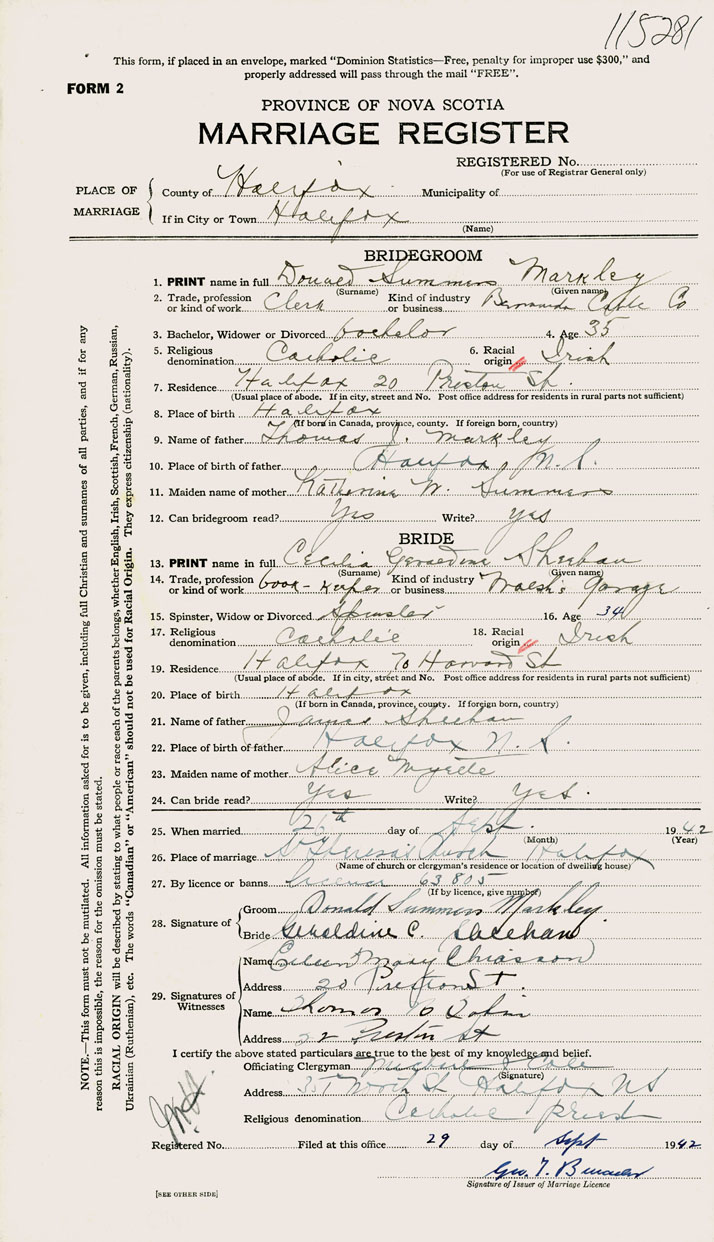 115281
This form, if placed in an envelope, marked “Dominion Statistics—Free, penalty for improper use $300,” and
properly addressed will pass through the mail “FREE”.
FORM 2
PROVINCE OF NOVA SCOTIA
MARRIAGE REGISTER
REGISTERED No.
(For use of Registrar General only)
PLACE OF MARRIAGE
County of Halifax Municipality of
If in City or Town Halifax
(Name)
BRIDEGROOM
1. PRINT name in full Donald Summers Markley
(Surname) (Given name)
2. Trade, profession or kind of work Clerk Kind of industry or business Cable Co
3. Bachelor, Widower or Divorced bachelor 4. Age 35
5. Religious denomination Catholic 6. Racial origin Irish
7. Residence Halifax 20 Preston St.
(Usual place of abode. If in city, street and No. Post office address for residents in rural parts not sufficient)
8. Place of birth Halifax
(If born in Canada, province, county. If foreign born, country)
9. Name of father Thomas J. Markley
10. Place of birth of father Halifax, N.S.
11. Maiden name of mother Katherine W. Summers
12. Can bridegroom read? Yes Write? yes
BRIDE
13. PRINT name in full Cecilia Geraldine Sheehan
(Surname) (Given name)
14. Trade, profession or kind of work book-keeper Kind of industry or business Walsh's Garage
15. Spinster, Widow or Divorced Spinster 16. Age 34
17. Religious denomination Catholic 18. Racial origin Irish
19. Residence Halifax 70 Harvard St
(Usual place of abode. If in city, street and No. Post office address for residents in rural parts not sufficient)
20. Place of birth Halifax
(If born in Canada, province, county. If foreign born, country)
21. Name of father James Sheehan
22. Place of birth of father Halifax N.S.
23. Maiden name of mother Alice Myette
24. Can bride read? Yes Write? Yes.
25. When married 26th day of Sept. 1942
(Month) (Year)
26. Place of marriage St Theresa's Church Halifax
(Name of church or clergyman's residence or location of dwelling house)
27. By licence or banns licence 63805
(If by licence, give number)
28. Signature of
Groom Donald Summers Markley
Bride Geraldine C. Sheehan
29. Signatures of Witnesses
Name Eileen Mary Chiasson
Address 20 Preston St.
Name Thomas
Address 22 Preston St
I certify the above stated particulars are true to the best of my knowledge and belief.
Officiating Clergyman
(Signature)
Address North St Halifax NS
Religious denomination Catholic priest
Registered No. Filed at this office 29 day of Sept 1942
Geo. T.
Signature of Issuer of Marriage Licence
[SEE OTHER SIDE]
NOTE.—This form must not be mutilated. All information asked for is to be given, including full Christian and surnames of all parties, and if for any
reason this is impossible, the reason for the omission must be stated.
RACIAL ORIGIN will be described by stating to what people or race each of the parents belongs, whether English, Irish, Scottish, French, German, Russian,
Ukrainian (Ruthenian), etc. The words “Canadian” or “American” should not be used for Racial Origin. They express citizenship (nationality).